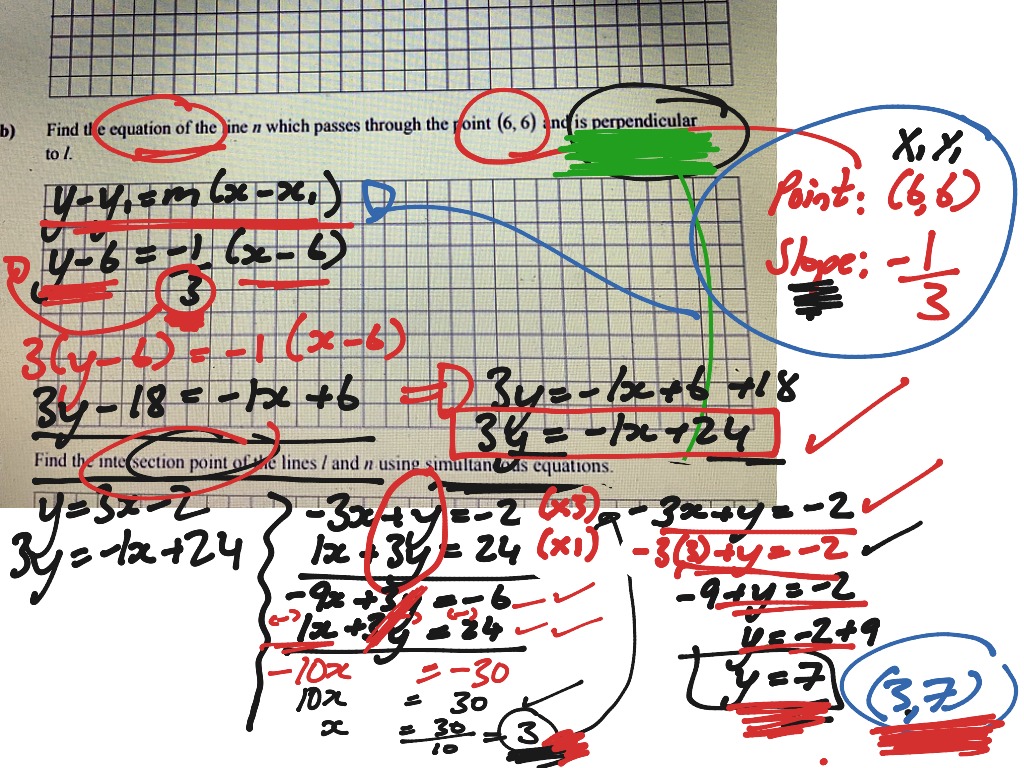 b) Find the equation of the line n which passes through the point (6, 6) and is perpendicular
to l.
X₁ Y₁
Point: (6,6)
Slope: -1/3
y-y₁=m(x-x₁)
y-6 = -1/3 (x-6)
3(y-6) = -1 (x-6)
3y-18 = -1x +6 ⇒ 3y=-1x+6 +18
3y = -1x+24
Find the intersection point of the lines l and n using simultaneous equations.
y=3x-2
3y=-1x+24
-3x+y=-2 (x3)
1x+3y=24 (x1)
-9x+3y=-6
1x+3y=24
-10x =-30
10x = 30
x = 30/10 = 3
-3x+y=-2
-3(3)+y=-2
-9+y=-2
y=-2+9
y=7
(3,7)